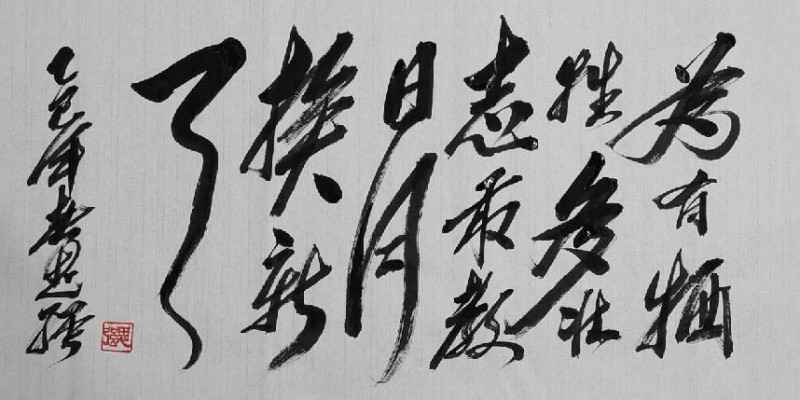 为有牺
牲多壮
志敢教
日月
换新
天
乙巳年